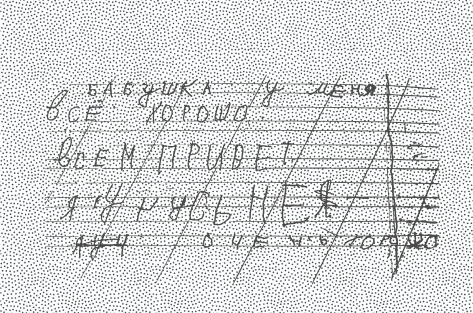 БАБУШКА У МЕНЯ
ВСЁ ХОРОШО.
ВСЕМ ПРИВЕТ
Я УЧУСЬ НЕ
ОЧЕНЬ